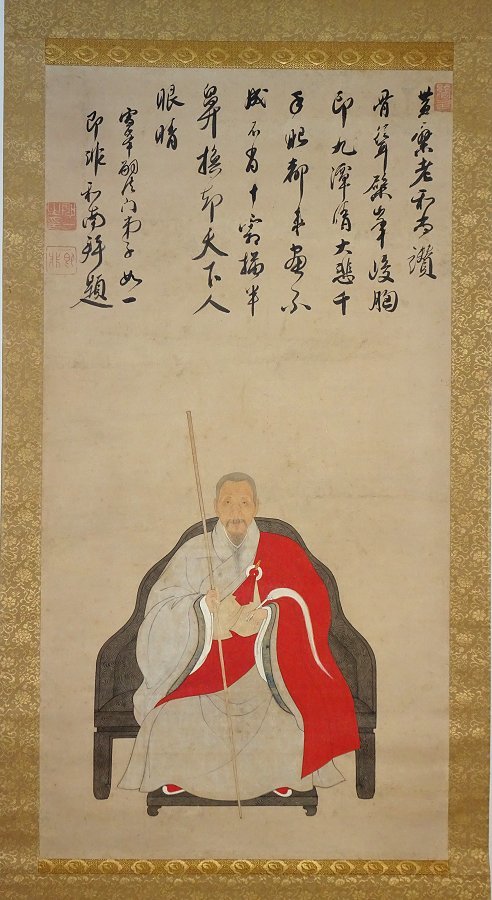 黄檗老和尚讚
骨聳檗峯峻胸
印九潭清大悲千
手眼都来畫不
成不肖十描半
鼻換却天下人
眼睛
雪峯嗣法門弟子如一
即非和南拜題
即非